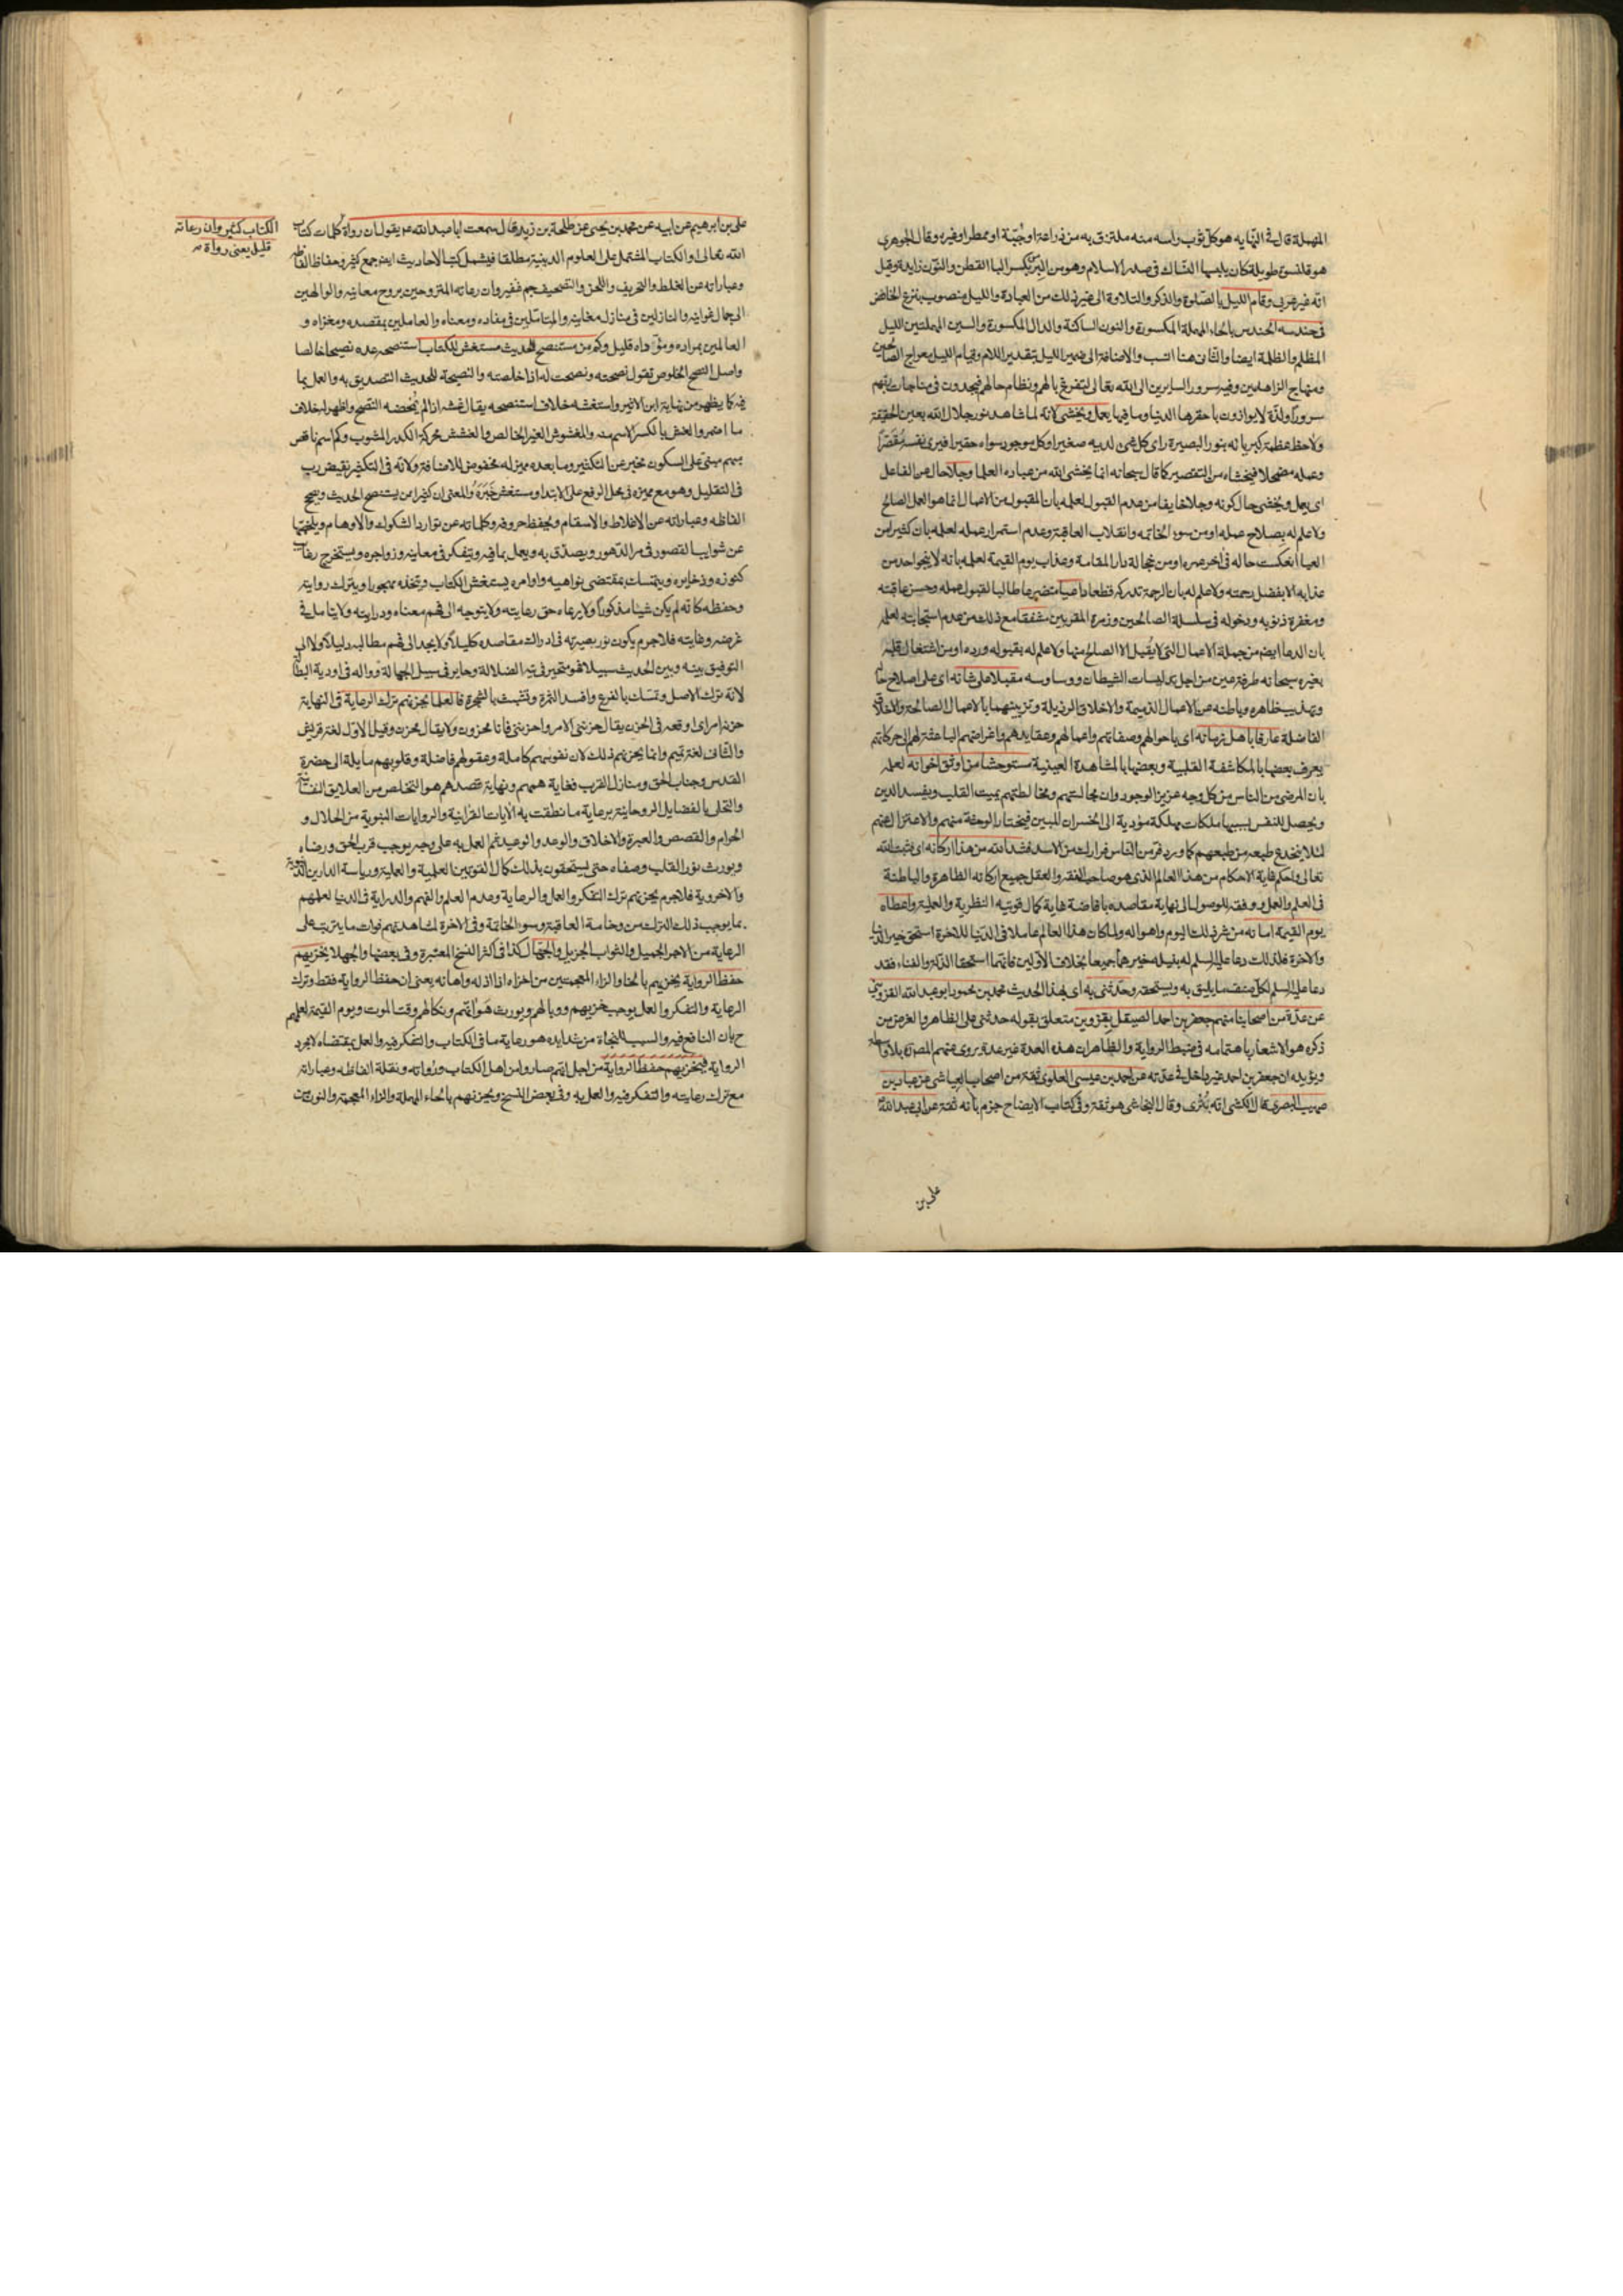 المهملة قال في النهايه هو كل ثوب راسه منه ملتزق به من دراعة او جبّة او ممطر او غيره وقال الجوهري
هو قلنسوة طويلة كان يلبسها النسّاك في صدر الاسلام وهو من البرس بكسر البا القطن والنون زايدة وقيل
انه غير عربي وقام الليل بالصلوة والذكر والتلاوة الى غير ذلك من العبادة والليل منصوب بنزع الخافض
في حندسه الحندس بالحاء المهملة المكسورة والنون الساكنة والدال المكسورة والسين المهملتين الليل
المظلم والظلمة ايضا والثاني هنا انسب والاضافة الى ضمير الليل بتقدير اللام وقيام الليل معراج الصالحين
ومنهاج الزاهدين وفيه سرور السايرين الى الله تعالى لتفرغ بالهم ونظام حالهم فيجدون في مناجات ربهم
سرورا ولذّة لا يوازنون باحقرها الدنيا وما فيها يعمل ويخشى لانه لما شاهد نور جلال الله بعين الحقيقة
ولاحظ عظمة كبريائه بنور البصيرة راى كل شئ لديه صغيرا وكل موجود سواه حقيرا فيرى نفسه مقصّرا
وعمله مضمحلا فيخشاه من التقصير كما قال سبحانه انما يخشى الله من عباده العلما وجلا حال عن الفاعل
اى يعمل ويخشى حال كونه وجلا خايفا من عدم القبول لعلمه بان المقبول من الاعمال انما هو العمل الصالح
ولا علم له بصلاح عمله او من سوء الخاتمه وانقلاب العاقبة وعدم استمرار عمله لعلمه بان كثيرا من
العبا انعكست حاله في آخر عمره او من خجالة دار المقامة وعذاب يوم القيمة لعلمه بانه لا ينجو احد من
عذابه الا بفضل رحمته ولا علم له بان الرحمة تدركه قطعا داعيا متضرعا طالبا لقبول عمله وحسن عاقبته
ومغفرة ذنوبه ودخوله في سلسلة الصالحين وزمرة المقربين مشفقا مع ذلك من عدم استجابته لعلمه
بان الدعا ايضا من جملة الاعمال التي لا يقبل الا الصالح منها ولا علم له بقبوله ورده او من اشتغال قلبه
بغيره سبحانه طرفة عين من اجل تدليسات الشيطان ووساوسه مقبلا على شانه اى على اصلاح حاله
وتهذيب ظاهره وباطنه عن الاعمال الذميمة والاخلاق الرذيلة وتزيينهما بالاعمال الصالحة والاخلاق
الفاضلة عارفا باهل زمانه اى باحوالهم وصفاتهم واعمالهم وعقايدهم واغراضهم الباعثة لهم الى حركاتهم
يعرف بعضها بالمكاشفة القلبية وبعضها بالمشاهدة العينية مستوحشا من اوثق اخوانه لعلمه
بان المرضى من الناس من كل وجه عزيز الوجود وان مجالستهم ومخالطتهم يميت القلب ويفسد الدين
ويحصل للنفس بسببها ملكات مهلكة مؤدية الى الخسران المبين فيختار الوحشة منهم والاعتزال عنهم
لئلا ينخدع طبعه من طبعهم كما ورد فر من الناس فرارك من الاسد فشد الله من هذا اركانه اى فثبت الله
تعالى واحكم غاية الاحكام من هذا العالم الذي هو صاحب الفقه والعقل جميع اركانه الظاهرة والباطنة
في العلم والعمل ووفقه للوصول الى نهاية مقاصده بافاضة غاية كمال قوتيه النظرية والعملية واعطاه
يوم القيمة امانه من شر ذلك اليوم واهواله ولما كان هذا العالم عاملا في الدنيا للاخرة استحق خير الدنيا
والاخرة فلذلك دعا عليه السلم له بنيله خيرهما جميعا بخلاف الاولين فانهما استحقا الذلّ والفناء فقد
دعا عليه السلم لكل صنف ما يليق به ويستحقه وحدثني به اى بهذا الحديث محمد بن محمود ابو عبد الله القزويني
عن عدّة من اصحابنا منهم جعفر بن احمد الصيقل بقزوين متعلق بقوله حدثني على الظاهر والغرض من
ذكره هو الاشعار باهتمامه في ضبط الرواية والظاهر ان هذه العدة غير عدة يروى عنهم المصنف بلا واسطة
ويؤيده ان جعفر بن احمد غير داخل في عدته عن احمد بن عيسى العلوى ثقة من اصحاب العياشي عن عباد بن
صهيب البصرى قال الكشي انه بترى وقال النجاشي هو ثقة وفي كتاب الايضاح جزم بانه ثقة عن ابي عبد الله
علي بن
علي بن ابرهيم عن ابيه عن محمد بن يحيى عن طلحة بن زيد قال سمعت ابا عبد الله ع يقول ان رواة كلمات كتاب
الكتاب كثير وان رعاته
قليل يعني رواة
الله تعالى او الكتاب المشتمل على العلوم الدينية مطلقا فيشمل كتب الاحاديث ايضا جمع كثير وحفاظ الفاظه
وعباراته عن الغلط والتحريف واللحن والتصحيف جم غفير وان رعاته المتروحين بروح معانيه والوالهين
الى جمال غوانيه والنازلين في منازل مغانيه والمتاملين في مفاده ومعناه والعاملين بمقصده ومغزاه و
العالمين بمراده ومؤداه قليل وكم من مستنصح للحديث مستغش للكتاب استنصحه عده نصيحا خالصا
واصل النصح الخلوص تقول نصحته ونصحت له اذا خلصته والنصيحة للحديث التصديق به والعمل بما
فيه كما يظهر من نهاية ابن الاثير واستغشه خلاف استنصحه يقال غشه اذا لم يمحضه النصح واظهر له خلاف
ما اضمر والغش بالكسر الاسم منه والمغشوش الغير الخالص والغشش محركة الكدر المشوب وكم اسم ناقص
مبهم مبني على السكون مخبر عن التكثير وما بعده مميز له مخفوض للاضافة ولانه في التكثير نقيض رب
في التقليل وهو مع مميزه في محل الرفع على الابتدا ومستغش خبره والمعنى ان كثيرا من يستنصح الحديث ويصحح
الفاظه وعباراته عن الاغلاط والاسقام ويحفظ حروفه وكلماته عن توارد الشكوك والاوهام ويلخصها
عن شوايب القصور في مر الدهور ويصدّق به ويعمل بما فيه ويتفكر في معانيه وزواجره ويستخرج رغائب
كنوزه وذخايره ويتمسك بمقتضى نواهيه واوامره يستغش الكتاب ويتخذه مهجورا ويترك روايته
وحفظه كانه لم يكن شيئا مذكورا ولا يرعاه حق رعايته ولا يتوجه الى فهم معناه ودرايته ولا يتامل في
غرضه وغايته فلا جرم يكون نور بصيرته في ادراك مقاصده كليلا ولا يجد الى فهم مطالبه دليلا ولا الى
التوفيق بينه وبين الحديث سبيلا فهو متحير في تيه الضلالة وحاير في سبيل الجهالة وواله في اودية البطالة
لانه ترك الاصل وتمسك بالفرع وافسد الثمرة وتشبث بالشجرة فالعلما يحزنهم ترك الرعاية في النهاية
حزنه امر اى اوقعه في الحزن يقال حزنني الامر واحزنني فانا محزون ولا يقال محزن وقيل الاول لغة قريش
والثاني لغة تميم وانما يحزنهم ذلك لان نفوسهم كاملة وعقولهم فاضلة وقلوبهم مايلة الى حضرة
القدس وجناب الحق ومنازل القرب فغاية هممهم ونهاية قصدهم هو التخلص من العلايق النفسانية
والتحلى بالفضايل الروحانية برعاية ما نطقت به الآيات القرآنية والروايات النبوية من الحلال و
الحرام والقصص والعبرة والاخلاق والوعد والوعيد ثم العمل به على وجه يوجب قرب الحق ورضاه
ويورث نور القلب وصفاه حتى يستحقون بذلك كمال القوتين العلمية والعملية ورياسة الدارين الدنيوية
والاخروية فلا جرم يحزنهم ترك التفكر والعمل والرعاية وعدم العلم والفهم والدراية في الدنيا لعلمهم
بما يوجب ذلك الترك من وخامة العاقبة وسوء الخاتمة وفي الاخرة لمشاهدتهم فوات ما يترتب على
الرعاية من الاجر الجميل والثواب الجزيل والجهال كذا في اكثر النسخ المعتبرة وفي بعضها والجهلا يخزيهم
حفظ الرواية يخزيهم بالخاء والزاء المعجمتين من اخزاه اذا اذله واهانه يعني ان حفظ الرواية فقط وترك
الرعاية والتفكر والعمل يوجب خزيهم ووبالهم ويورث هوانهم ونكالهم وقت الموت ويوم القيمة لعلمهم
ح بان النافع فيه والسبب للنجاة من شدايده هو رعاية ما في الكتاب والتفكر فيه والعمل بمقتضاه لا مجرد
الرواية فيخزيهم حفظ الرواية من اجل انهم صاروا من اهل الكتاب ورواته ونقلة الفاظه وعباراته
مع ترك رعايته والتفكر فيه والعمل به وفي بعض النسخ ويحزنهم بالحاء المهملة والزاء المعجمة والنون من